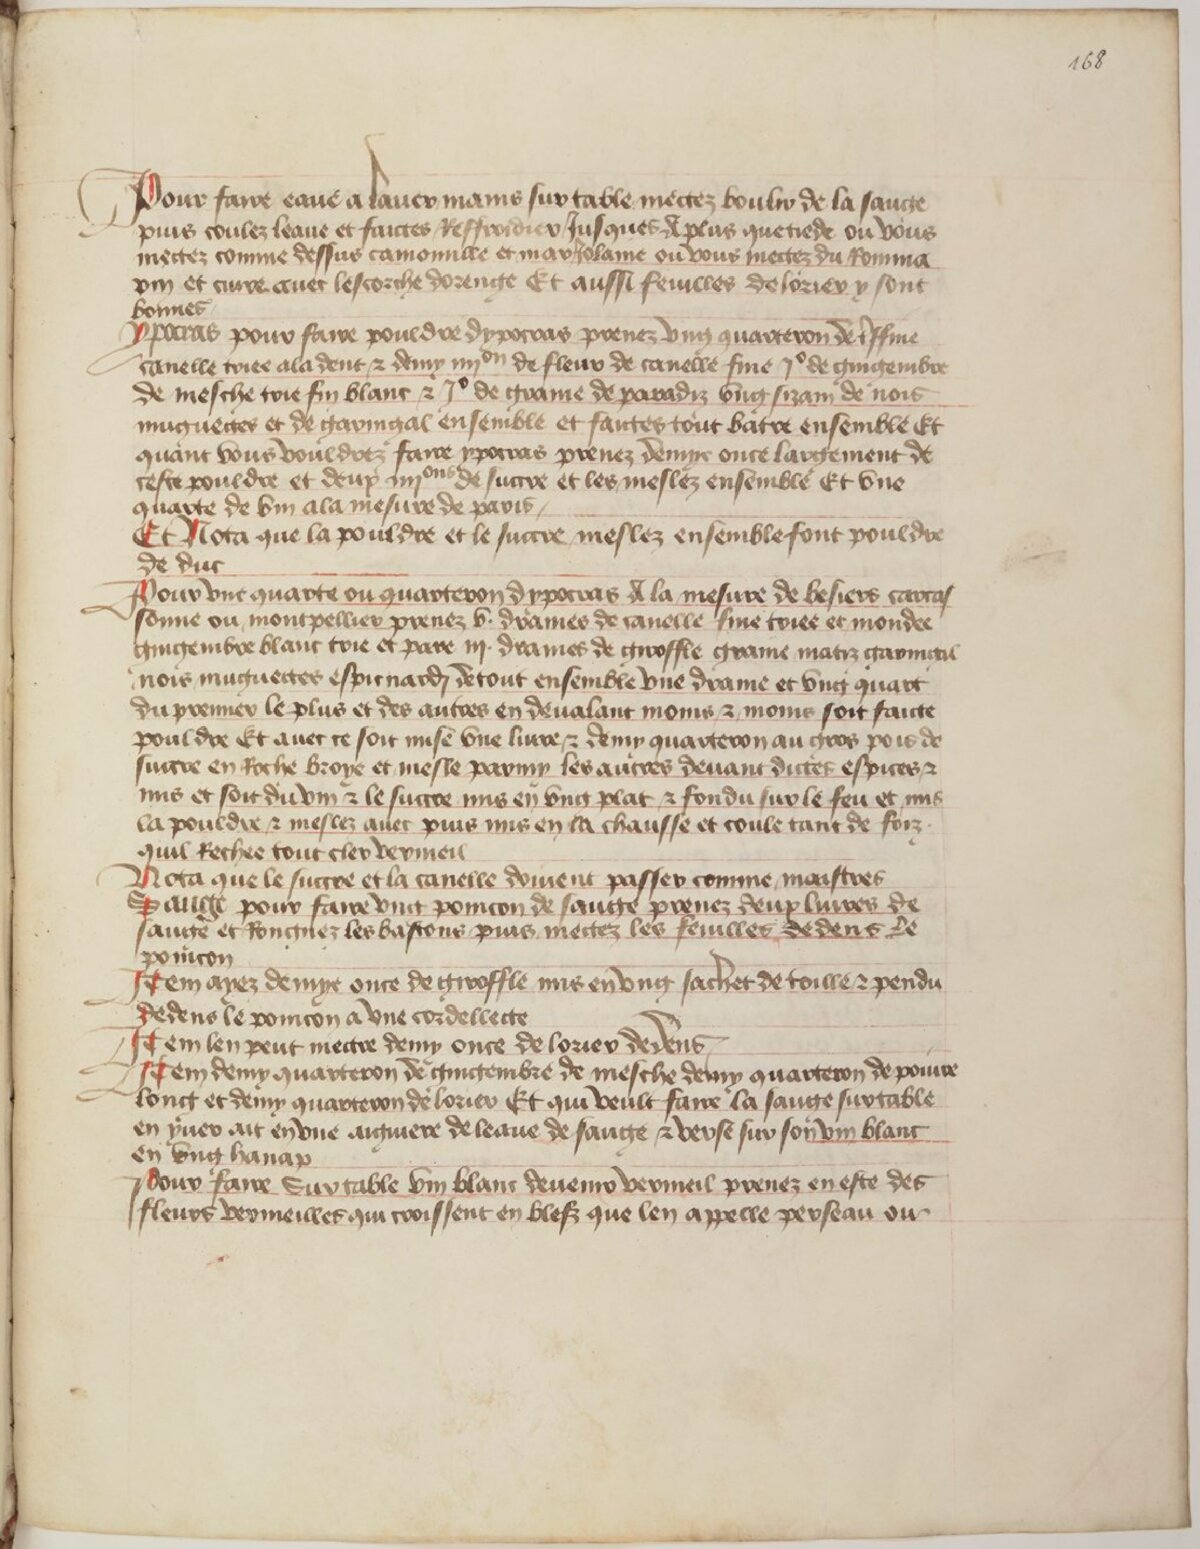 168
Pour faire eaue a laver mains sur table mectez boulir de la sauge
puis coulez leaue et faictes Reffroidier Jusques A plus que tiede ou vous
mectez comme dessus camomille et marJolaine ou vous mectez du Romma
rin et cuire avec lescorche dorenge Et aussi feuilles de lorier y sont
bonnes
Ypocras pour faire pouldre dypocras prenez ung quarteron de
canelle triee a la dent ⁊ demy iiiion de fleur de canelle fine Jo de gingembre
de mesche trie fin blanc ⁊ Jo de graine de paradiz ung sizain de nois
muguectes et de garingal ensemble et faictes tout batre ensemble Et
quant vous vouldrez faire ypocras prenez demye once largement de
ceste pouldre et deux iiiions de succre et les meslez ensemble Et une
quarte de vin a la mesure de paris
Et Nota que la pouldre et le succre meslez ensemble font pouldre
de duc
Pour une quarte ou quarteron dypocras A la mesure de besiers carcas
sonne ou montpellier prenez v. drames de canelle fine triee et mondee
gingembre blanc trie et pare iij. drames de giroffle graine matiz garingal
nois muguectes espicnardj de tout ensemble une drame et ung quart
du premier le plus et des autres en devalant moins ⁊ moins soit faicte
pouldre Et avec ce soit mise une livre ⁊ demy quarteron au gros pois de
succre en Roche broye et mesle parmy les autres devant dictes espices ⁊
mis et soit du vin ⁊ le succre mis en ung plat ⁊ fondu sur le feu et mis
la pouldre ⁊ meslez avec puis mis en la chausse et coule tant de foiz
quil Rechee tout cler vermeil
Nota que le succre et la canelle doivent passer comme maistres
Sauge pour faire ung poincon de sauge prenez deux livres de
sauge et Rongnez les bastons puis mectez les feuilles dedens le
poincon
Item ayez demye once de giroffle mis en ung sachet de toille ⁊ pendu
dedens le poincon a une cordellecte
Item len peut mectre demy once de lorier dedens
Item demy quarteron de gingembre de mesche demy quarteron de poivre
long et demy quarteron de lorier Et qui veult faire la sauge sur table
en yver ait en une aiguiere de leaue de sauge ⁊ verse sur son vin blanc
en ung hanap
Pour faire Sur table vin blanc devenir vermeil prenez en este des
fleurs vermeilles qui croissent en blefz que len appelle perseau ou